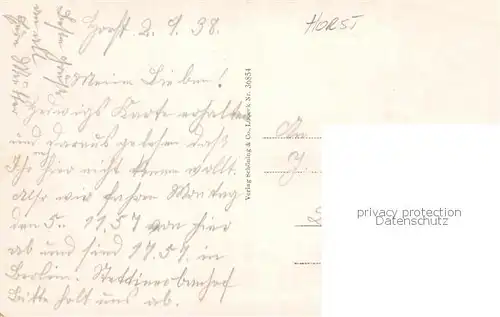 Horst. 2. 9. 38.
HORST
Meine Lieben!
Hedwigs Karte erhalten
und daraus gelesen daß
Ihr hier nicht kommen wollt.
Also wir fahren Montag
den 5. 11.57 von hier
ab und sind 17.51. in
Berlin. Stettinerbahnhof
Bitte holt uns ab.
Beste Grüße
Eure Mutter
Verlag Schöning & Co., Lübeck Nr. 36854
An
privacy protection
Datenschutz